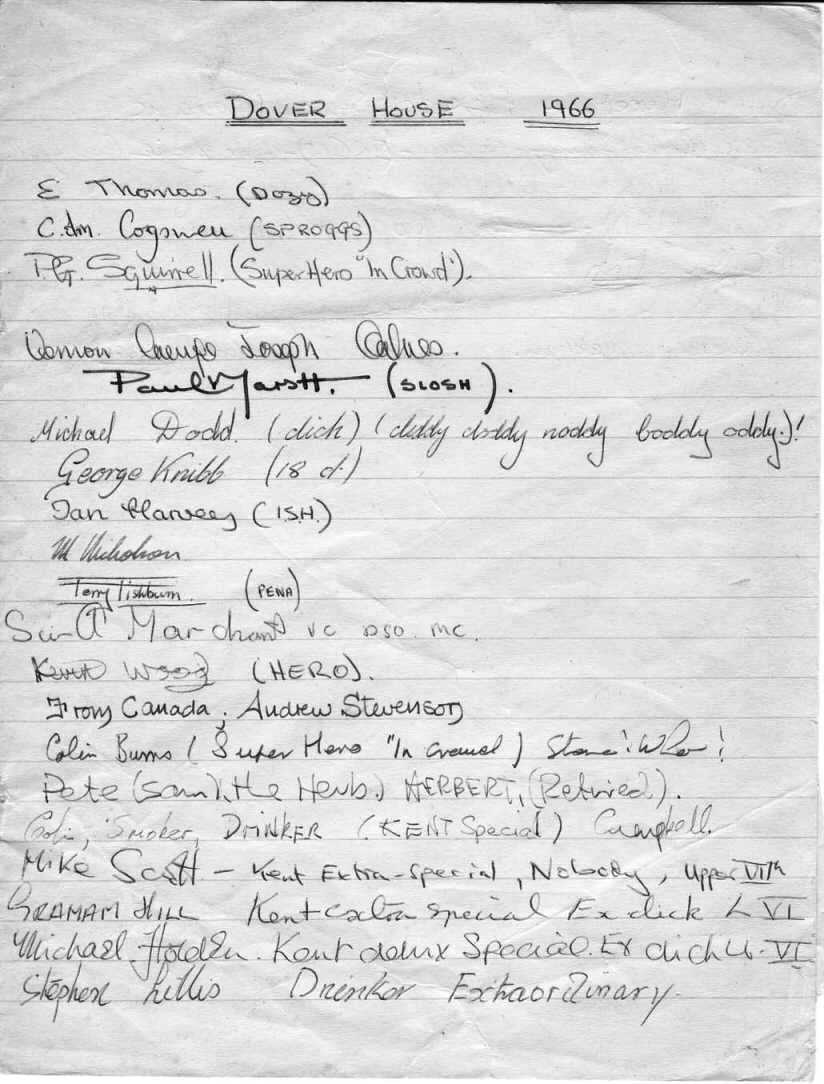 DOVER HOUSE 1966
E Thomas. (DOZY)
C.dm. Cogswell (SPROGGS)
P.G. Squirrell. (Super Hero "In Crowd").
Joseph
Paul (SLOSH).
Michael Dodd. (dick) (diddy doddy noddy boddy oddy.)!
George Knibb (18 d.)
Ian Harvey (I.S.H.)
M Nicholson
Terry Tishburn. (PENA)
Marchant VC DSO. MC.
Kevin Wood (HERO).
From Canada, Andrew Stevenson
Colin Burns (Super Hero "In crowd)
Pete (Sam), (the Herb.) HERBERT, (Retired).
Colin, Smoker, DRINKER (KENT Special) Campbell.
Mike Scott - Kent Extra-special, Nobody, Upper VIth
GRAHAM HILL Kent extra special Ex dick L VI
Michael Holden. Kent delux Special. Ex dick U. VI
Stephen Lillis Drinker Extraordinary.